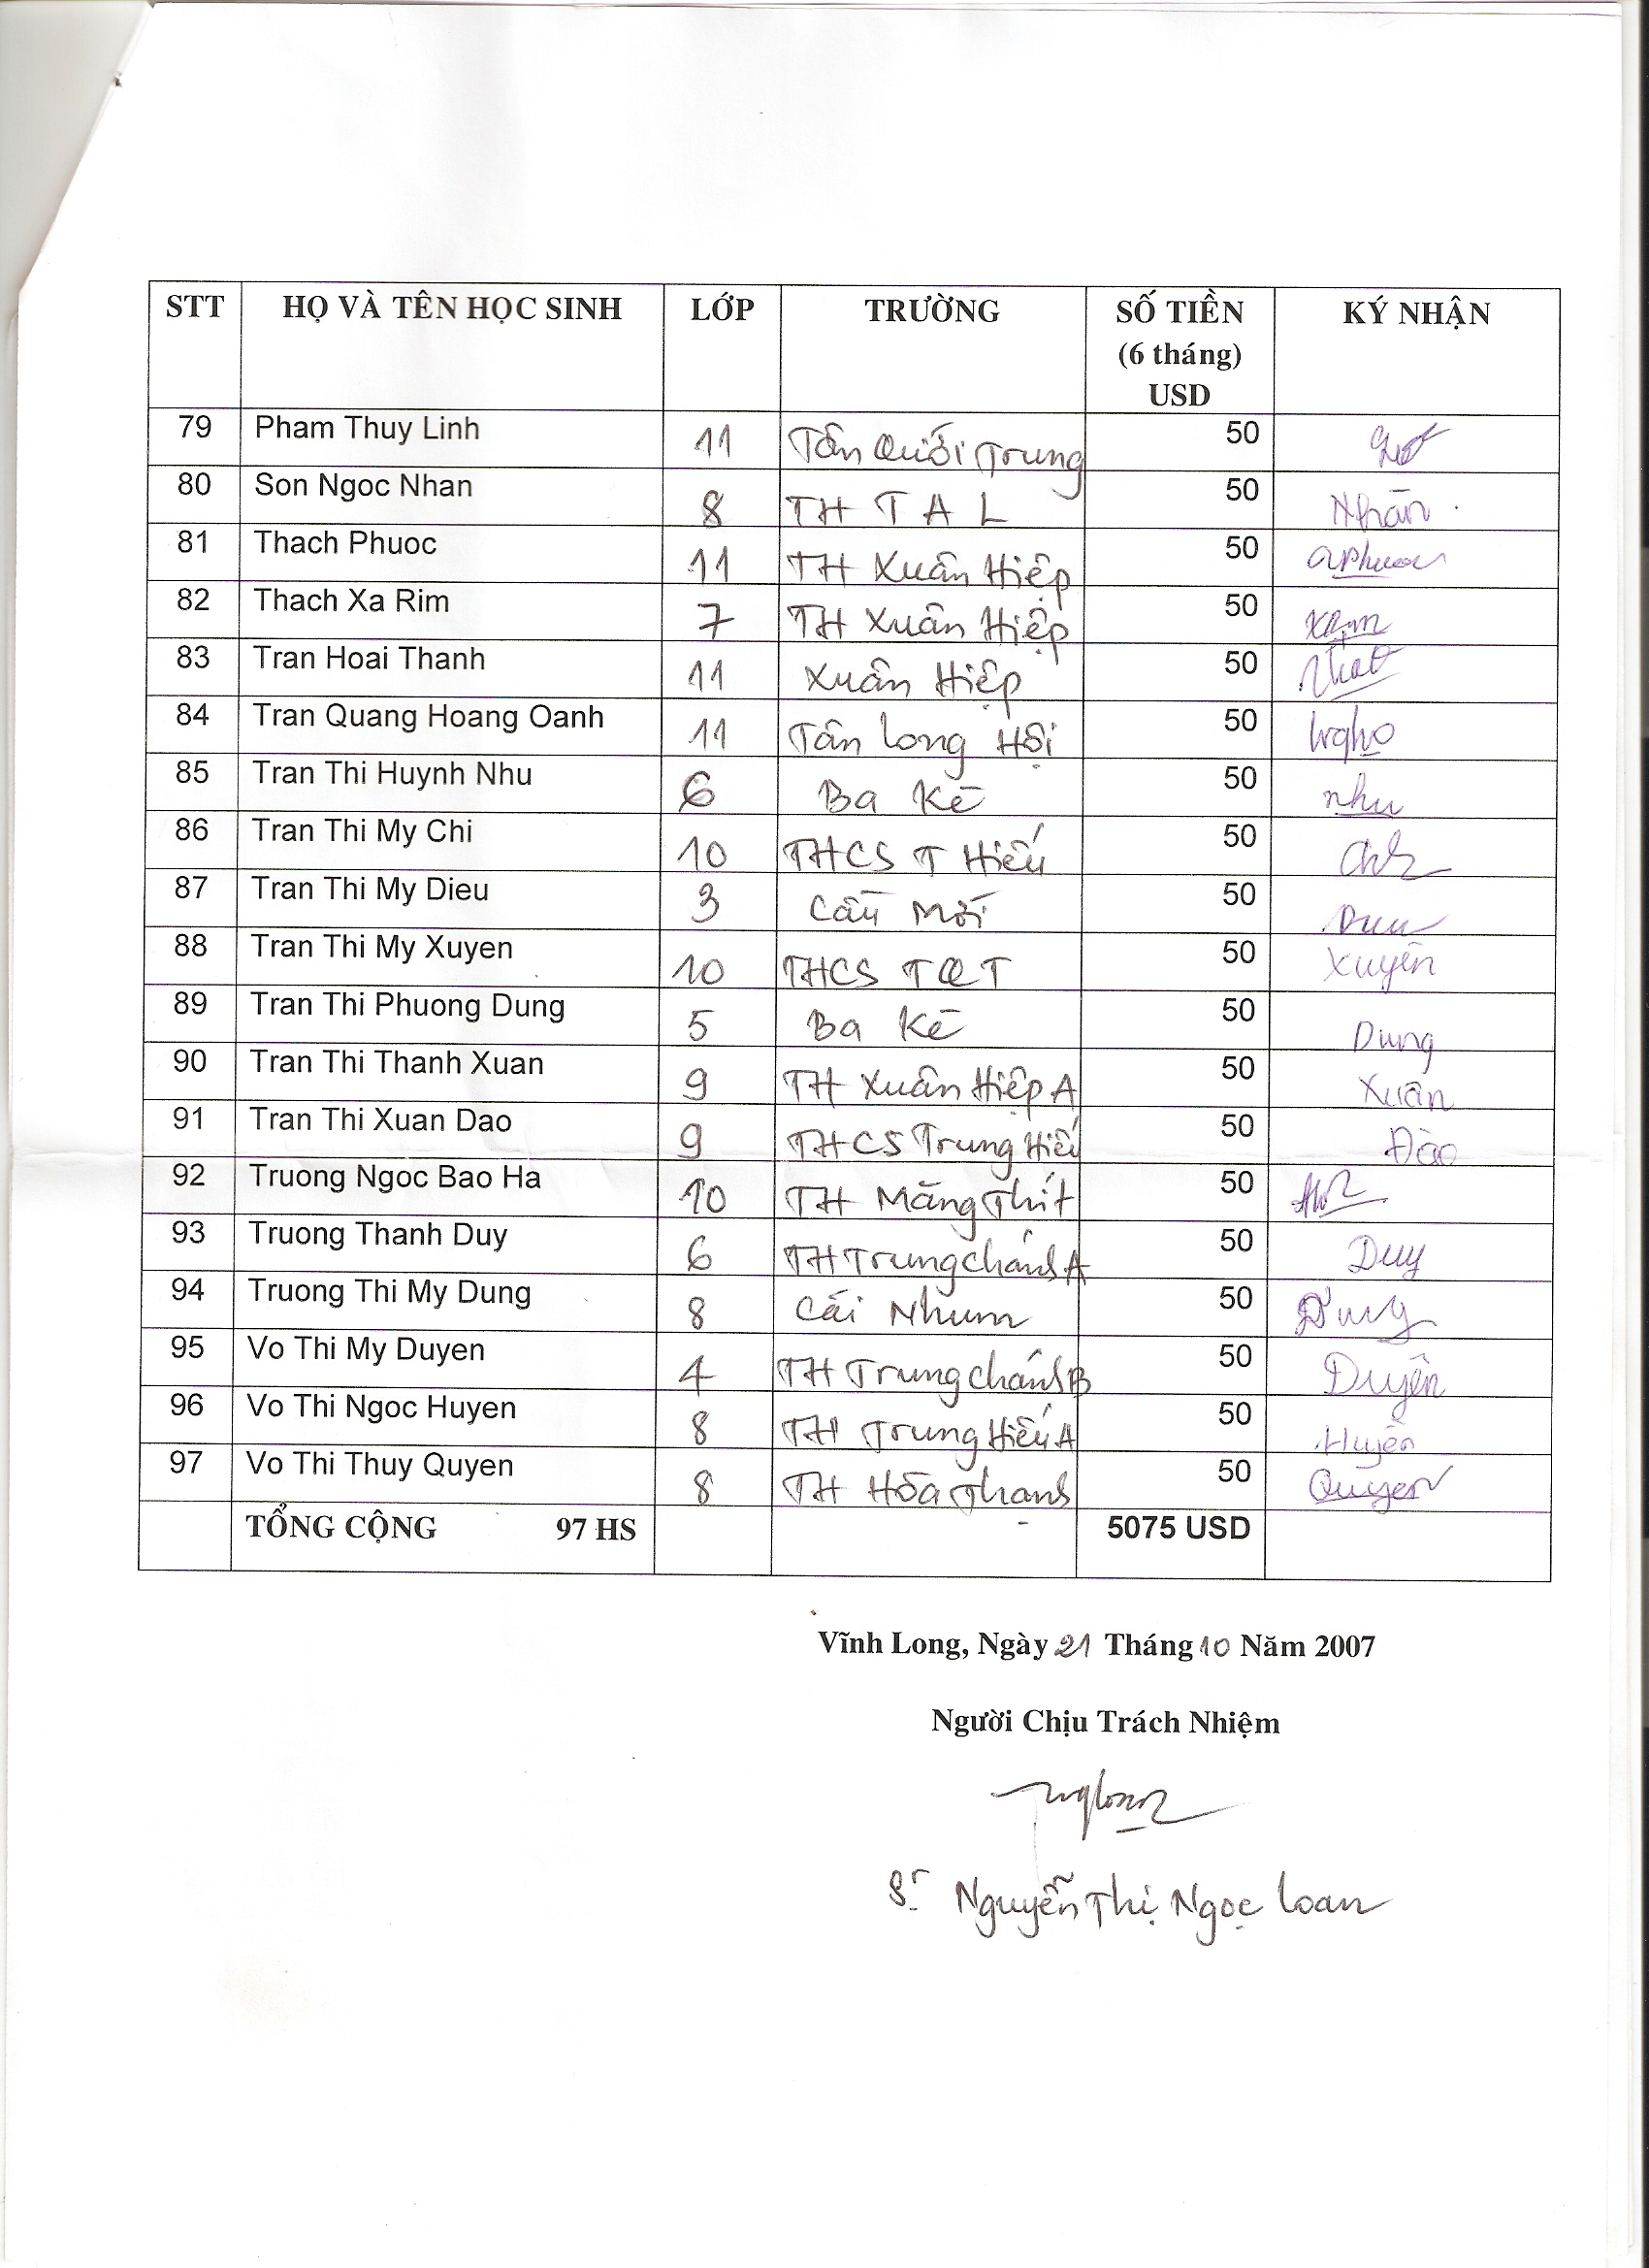 STT HỌ VÀ TÊN HỌC SINH LỚP TRƯỜNG SỐ TIỀN KÝ NHẬN
(6 tháng)
USD
79 Pham Thuy Linh 11 Tân Quới Trung 50
80 Son Ngoc Nhan 8 TH T A L 50 Nhân
81 Thach Phuoc 11 TH Xuân Hiệp 50
82 Thach Xa Rim 7 TH Xuân Hiệp 50
83 Tran Hoai Thanh 11 Xuân Hiệp 50
84 Tran Quang Hoang Oanh 11 Tân Long Hội 50
85 Tran Thi Huynh Nhu 6 Ba Kè 50 như
86 Tran Thi My Chi 10 THCS T Hiếu 50
87 Tran Thi My Dieu 3 Cầu Mới 50
88 Tran Thi My Xuyen 10 THCS TQT 50 Xuyên
89 Tran Thi Phuong Dung 5 Ba Kè 50 Dung
90 Tran Thi Thanh Xuan 9 TH Xuân Hiệp A 50 Xuân
91 Tran Thi Xuan Dao 9 THCS Trung Hiếu 50 Đào
92 Truong Ngoc Bao Ha 10 TH Măng Thít 50
93 Truong Thanh Duy 6 TH Trung Chánh A 50 Duy
94 Truong Thi My Dung 8 Cái Nhum 50
95 Vo Thi My Duyen 4 TH Trung Chánh B 50 Duyên
96 Vo Thi Ngoc Huyen 8 TH Trung Hiếu A 50 Huyền
97 Vo Thi Thuy Quyen 8 TH Hòa Thạnh 50 Quyen
TỔNG CỘNG 97 HS 5075 USD
Vĩnh Long, Ngày 21 Tháng 10 Năm 2007
Người Chịu Trách Nhiệm
Sr Nguyễn Thị Ngọc Loan